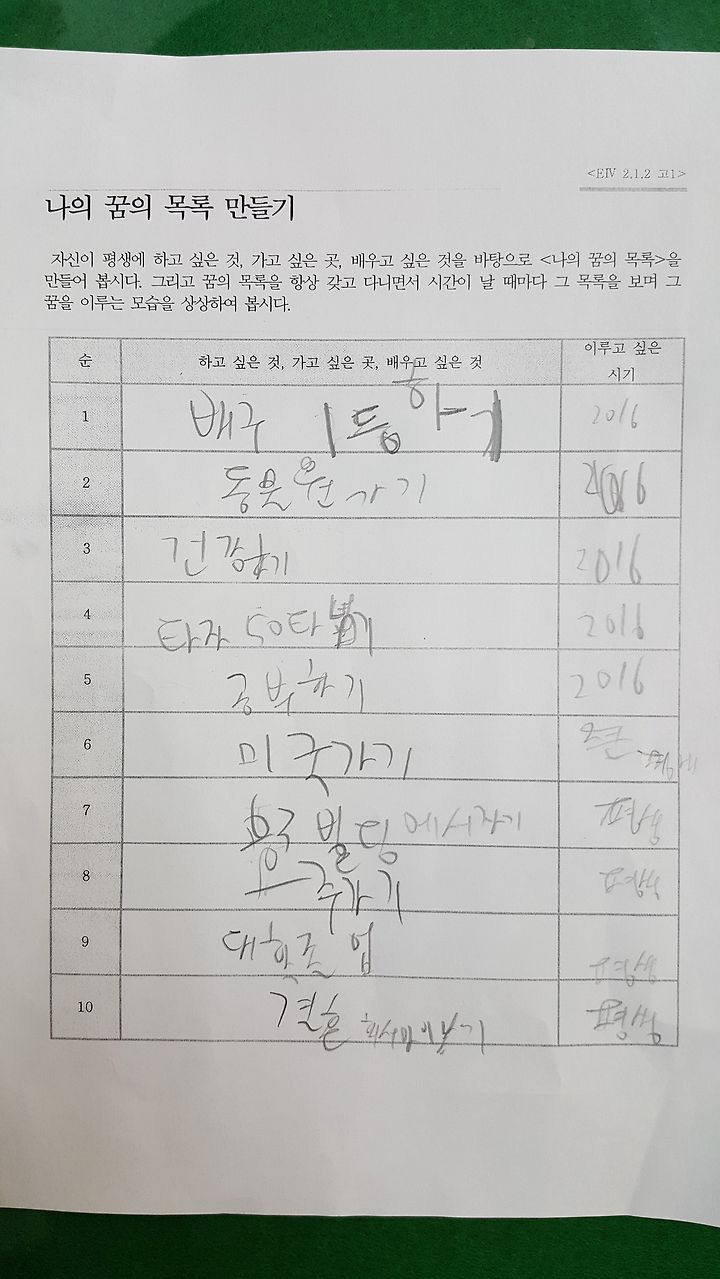 <EⅣ 2.1.2 고1>
나의 꿈의 목록 만들기
자신이 평생에 하고 싶은 것, 가고 싶은 곳, 배우고 싶은 것을 바탕으로 <나의 꿈의 목록>을
만들어 봅시다. 그리고 꿈의 목록을 항상 갖고 다니면서 시간이 날 때마다 그 목록을 보며 그
꿈을 이루는 모습을 상상하여 봅시다.
순 하고 싶은 것, 가고 싶은 곳, 배우고 싶은 것 이루고 싶은
시기
1 배구 1등하기 2016
2 동물원 가기 2016
3 건강하기 2016
4 타자 50타 2016
5 공부하기 2016
6 미국가기
7 빌딩에서자기 평생
8 우주가기 평생
9 대학졸업 평생
10 결혼 평생